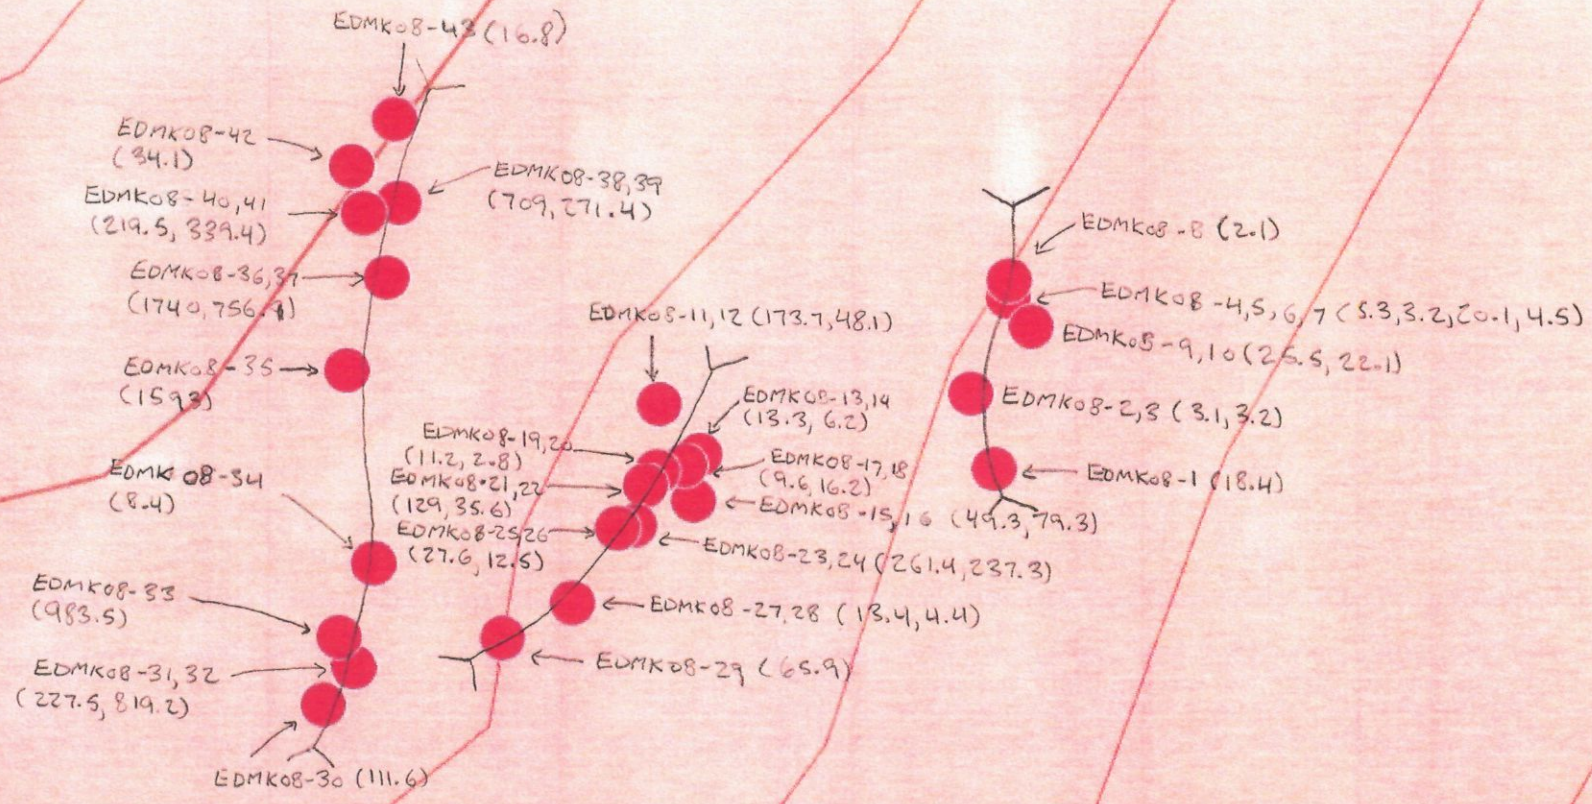 EDMK08-43 (16.8)
EDMK08-42
(34.1)
EDMK08-40,41
(219.5, 339.4)
EDMK08-38,39
(709, 271.4)
EDMK08-36,37
(1740, 756.1)
EDMK08-35
(1593)
EDMK08-34
(8.4)
EDMK08-33
(983.5)
EDMK08-31,32
(227.5, 819.2)
EDMK08-30 (111.6)
EDMK08-11,12 (173.7, 48.1)
EDMK08-13,14
(13.3, 6.2)
EDMK08-19,20
(11.2, 2.8)
EDMK08-17,18
(9.6, 16.2)
EDMK08-21,22
(129, 35.6)
EDMK08-15,16 (49.3, 79.3)
EDMK08-25,26
(27.6, 12.5)
EDMK08-23,24 (261.4, 237.3)
EDMK08-27,28 (13.4, 4.4)
EDMK08-29 (65.9)
EDMK08-8 (2.1)
EDMK08-4,5,6,7 (5.3, 3.2, 20.1, 4.5)
EDMK08-9,10 (25.5, 22.1)
EDMK08-2,3 (3.1, 3.2)
EDMK08-1 (18.4)